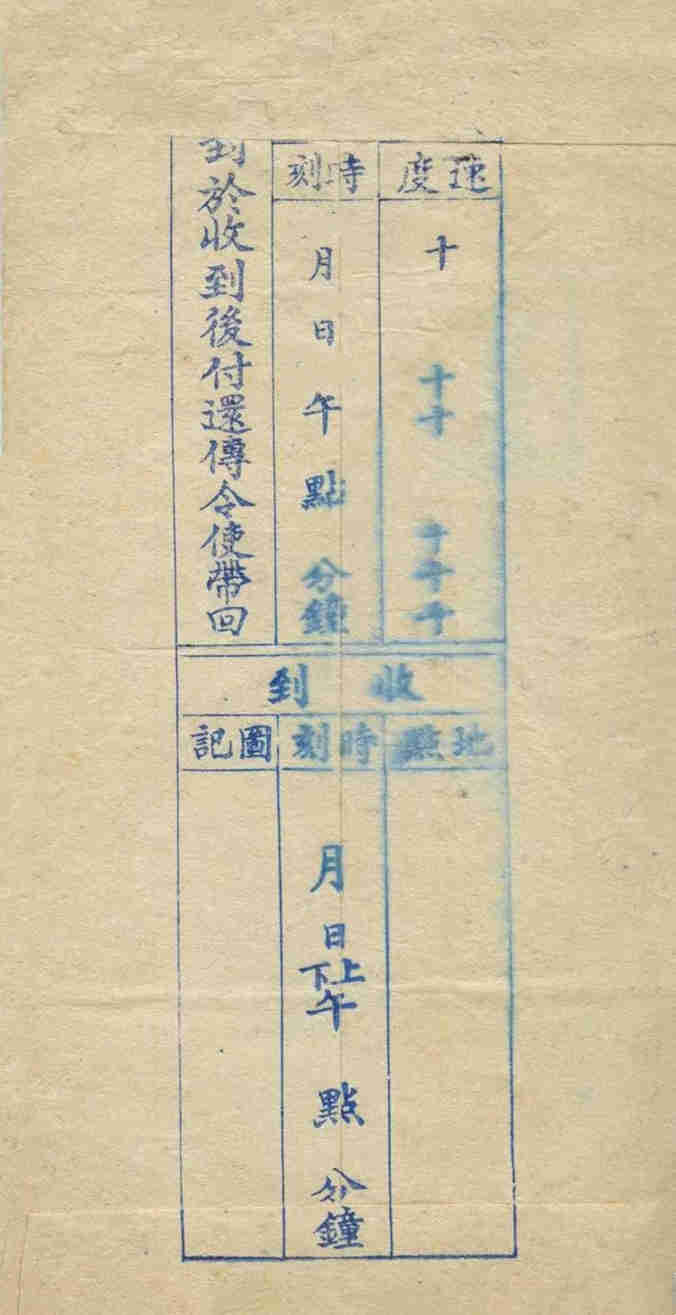 速度
十
十十
十十十
時刻
月日午點分鐘
到於收到後付還傳令使帶回
收到
地點
時刻
月日上下午點分鐘
圖記